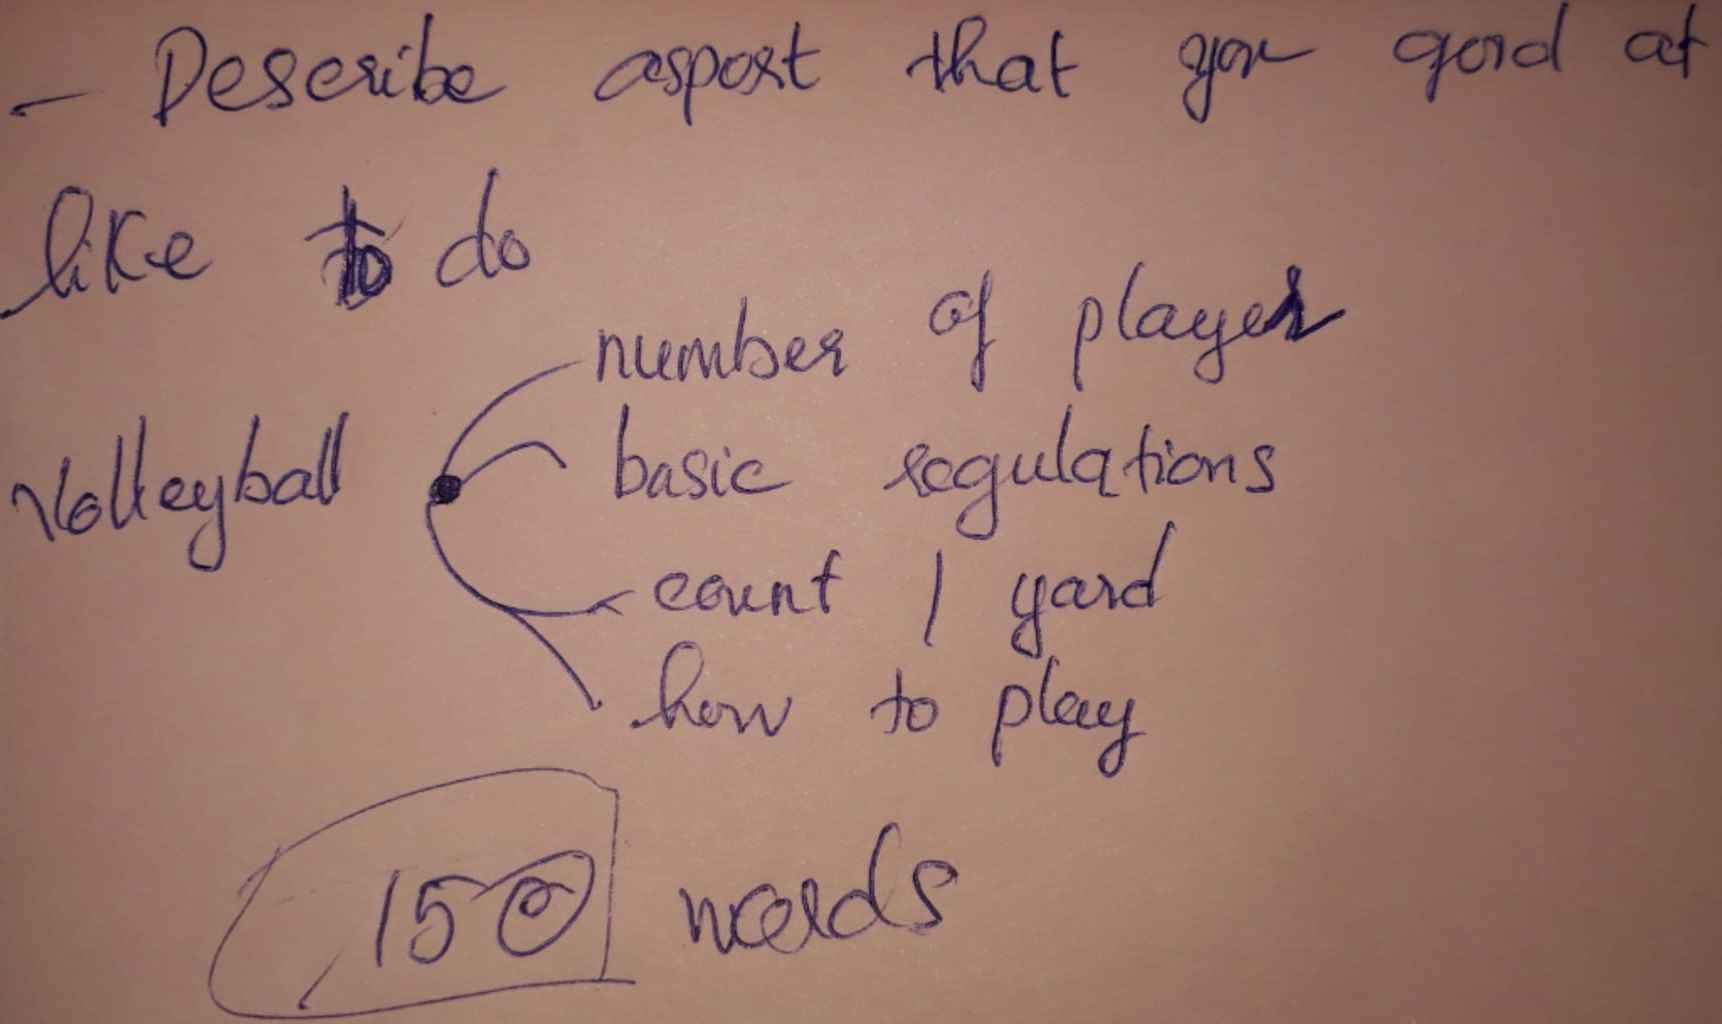 - Describe asport that you good at
like to do
number of player
Volleyball basic regulations
count / yard
how to play
150 words